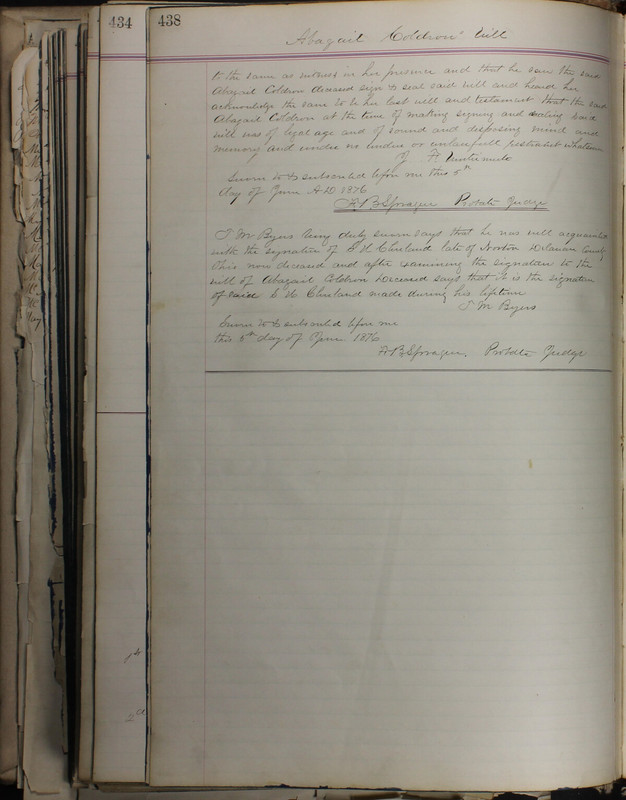 434
438
Abagail Coldron' Will
to the same as witness in her presence and that he saw the said
Abagail Coldron deceased sign & seal said will and heard her
acknowledge the same to be her last will and testament that the said
Abagail Coldron at the time of making signing and sealing said
will was of legal age and of sound and disposing mind and
memory and under no undue or unlawfull restraint whatsoever
J. F
Sworn to & subscribed before me this 5th
day of June A D 1876
A B Sprague Probate Judge
T M Byers being duly sworn says that he was well acquainted
with the signature of C H Cleveland late of Norton Delaware County
Ohio now deceased and after examining the signature to the
will of Abagail Coldron deceased says that it is the signature
of said C H Cleveland made during his lifetime
T M Byers
Sworn to & subscribed before me
this 5th day of June 1876
A B Sprague, Probate Judge